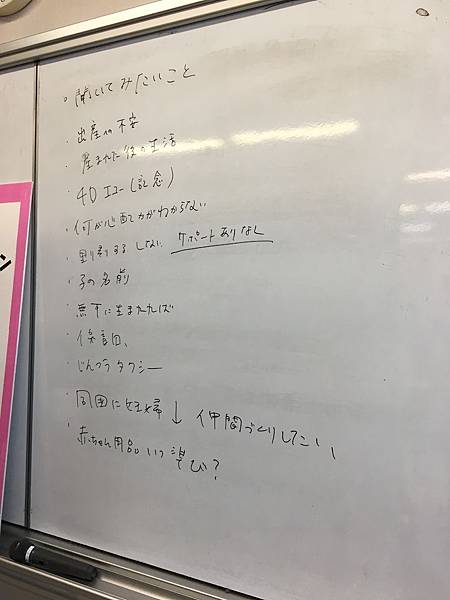 。聞いてみたいこと
・出産の不安
・産まれた後の生活
・4Dエコー(記念)
・何が心配かがわからない
・里帰りする しない サポートありなし
・子の名前
無事に生まれれば
・保育園、
・じんつうタクシー
・周囲に妊婦 ↓ 仲間づくりしてこい
・赤ちゃん用品いつ 選び?
ン